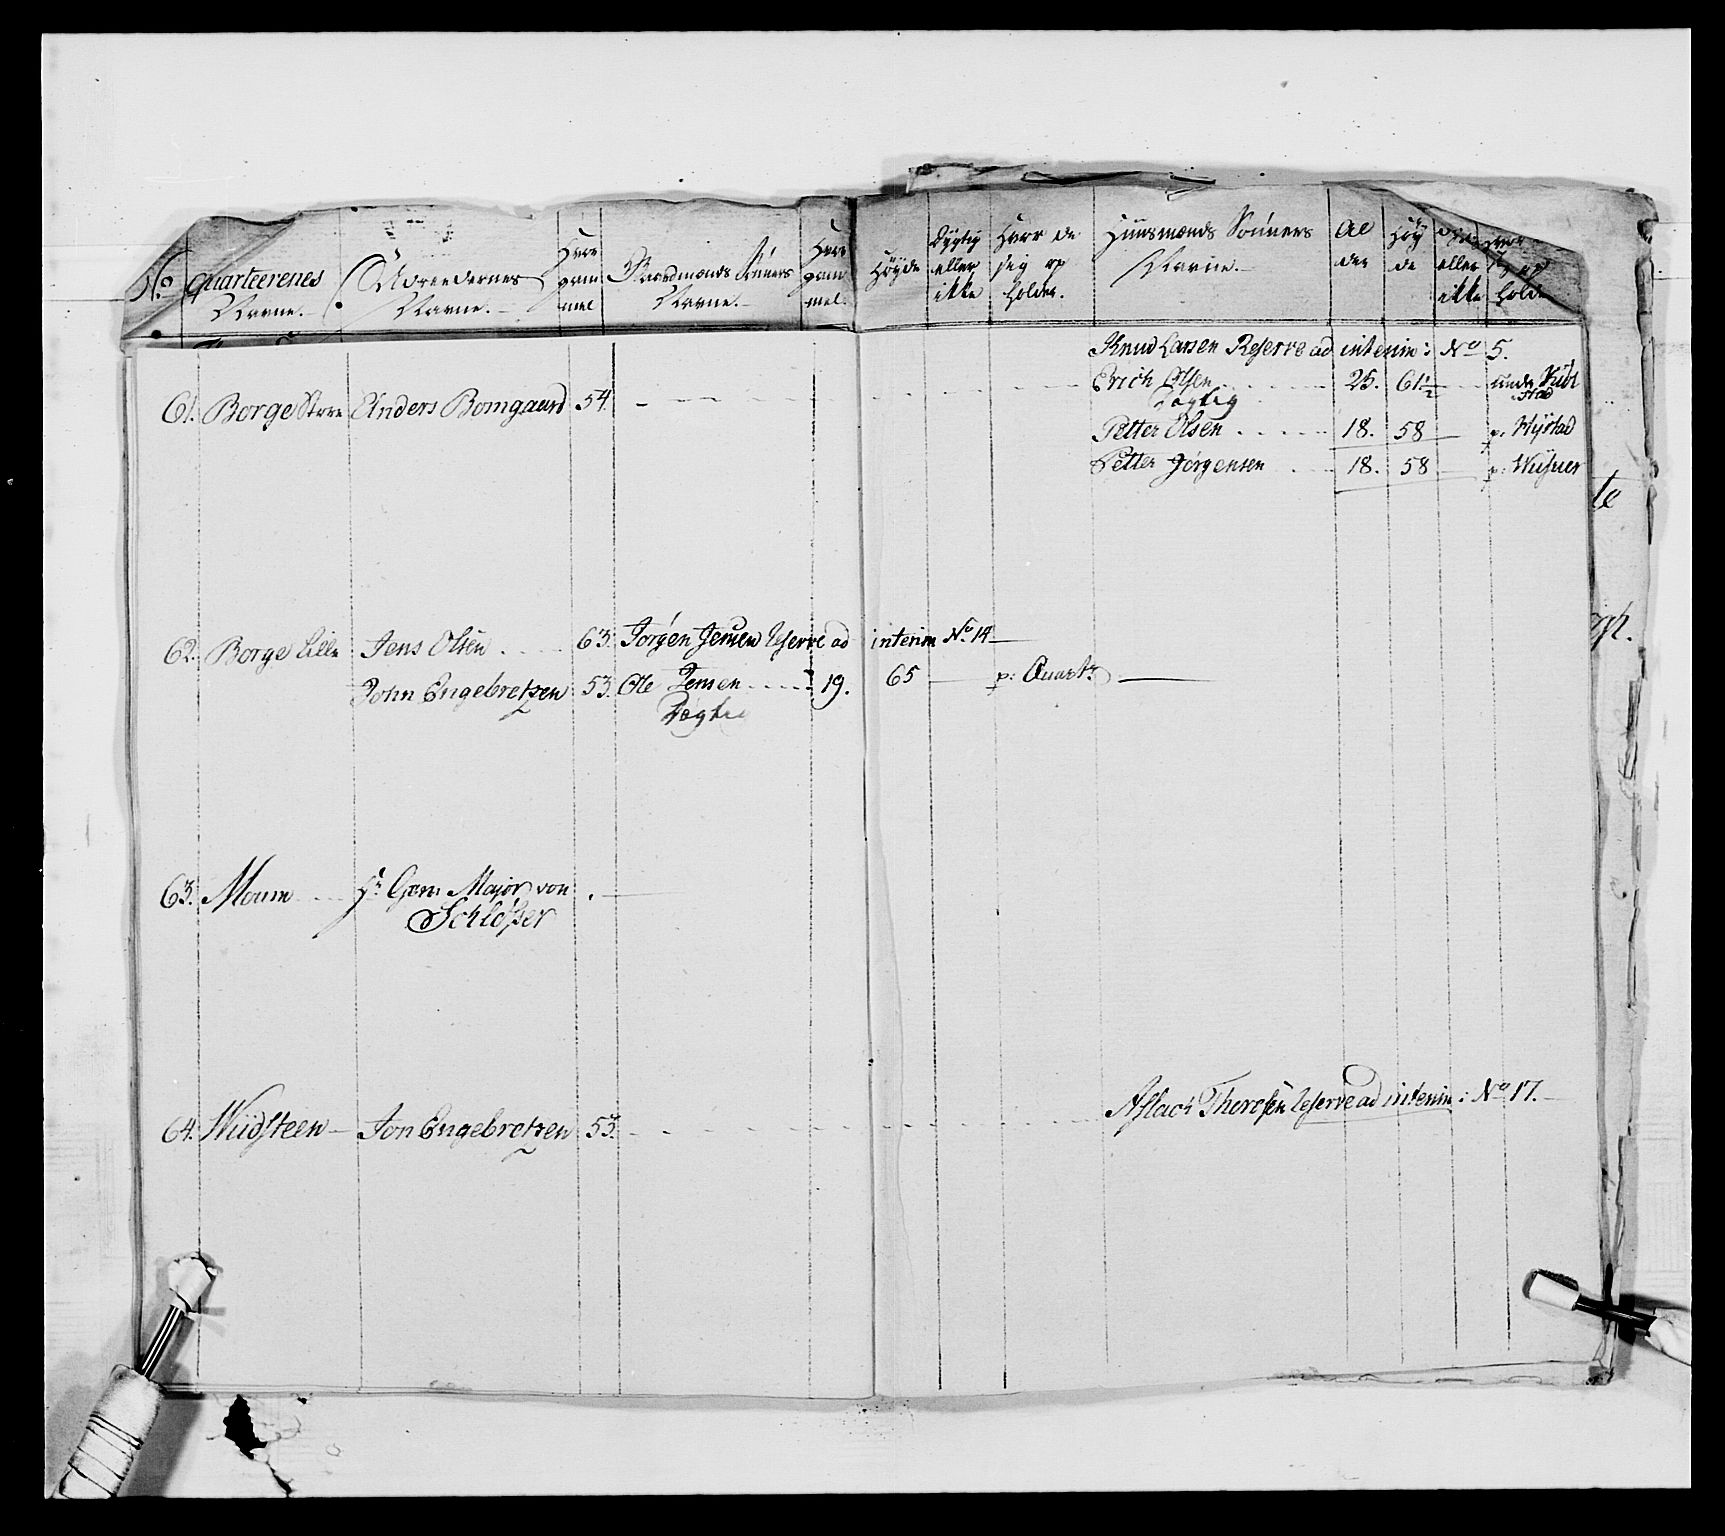 No quarteerenes Navne.
Navne.
Hvor gam mel
Gaardmands Sönners Navne.
Hvor gam mel.
Höyde
Dygtig eller ikke
Hvor de sig op holder.
Huusmænds Sönners Navne.
Al der
Höy de
eller ikke
Knud Larsen Reserve ad interim: No 5.
61. Borge Store Anders Bomgaard 54.
Erich Olsen 25. 61½
Dögtig
Petter Olsen 18. 58 p:
Petter Jörgensen 18. 58 p:
62. Borge Lille Jens Olsen 63. Jörgen Jensen Reserve ad interim No 14
John Engebretzen 53. Ole Jensen 19. 65 p: Quart:
Dögtig
63. Moum Hr Gen: Major von
Schlötzer
64. Wiidsteen Jon Engebretzen 53.
Aslach Thoresen Reserve ad interim: No 17.